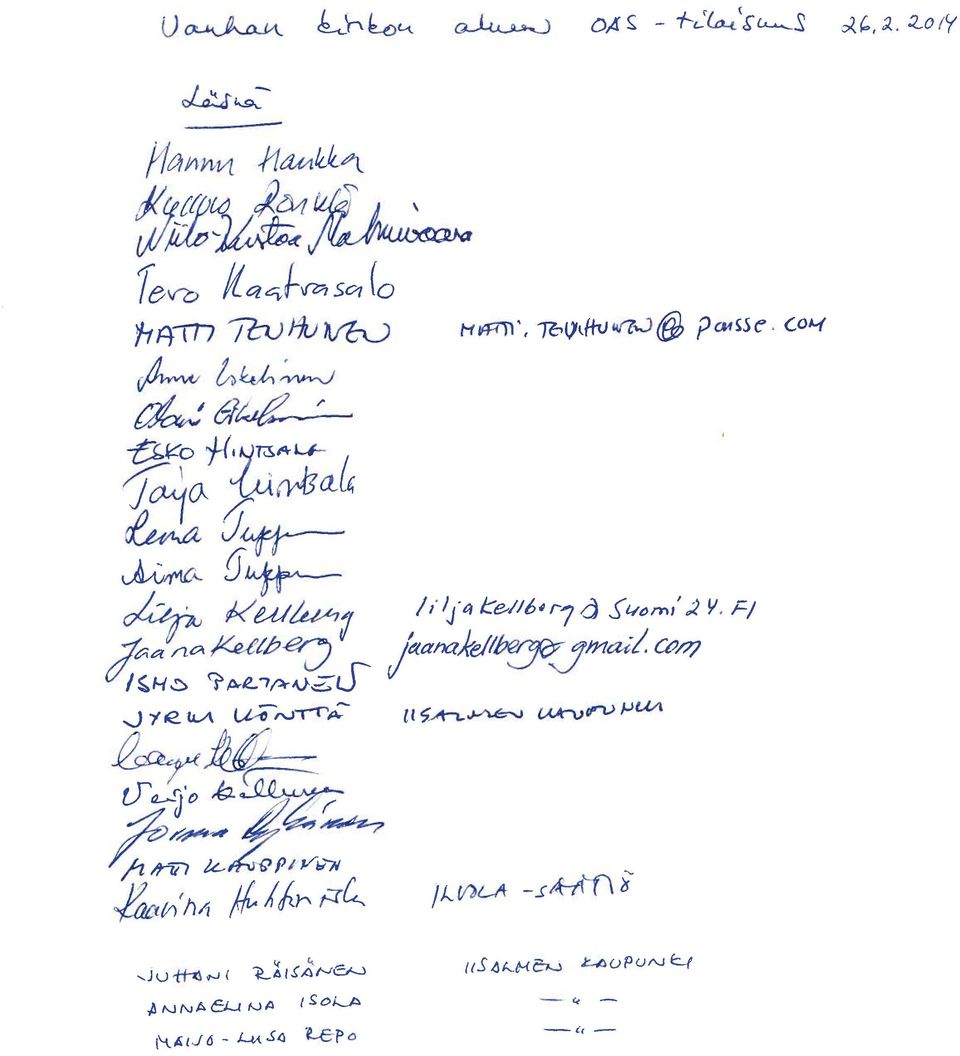 Vanhan kirkon alueen OAS - tilaisuus 26.2.2014
Läsnä
Hannu Haukka
Niilo-Kustaa Malmivaara
Tero Kaatrasalo
MATTI TENHUNEN MATTI.TENHUNEN@passe.com
Anne
ESKO HINTSALA
Tarja Hintsala
Leena
Aima
Lilja Kellberg liljakellberg@suomi24.FI
Jaana Kellberg jaanakellberg@gmail.com
ISMO PARTANEN
JYRKI KÖNTTÄ IISALMEN KAUPUNKI
Veijo
Jorma
MATTI KAUPPINEN
Kaarina -SÄÄTIÖ
JUHANI RÄISÄNEN IISALMEN KAUPUNKI
ANNAELINA ISOLA — " —
MAIJO-LIISA REPO — " —